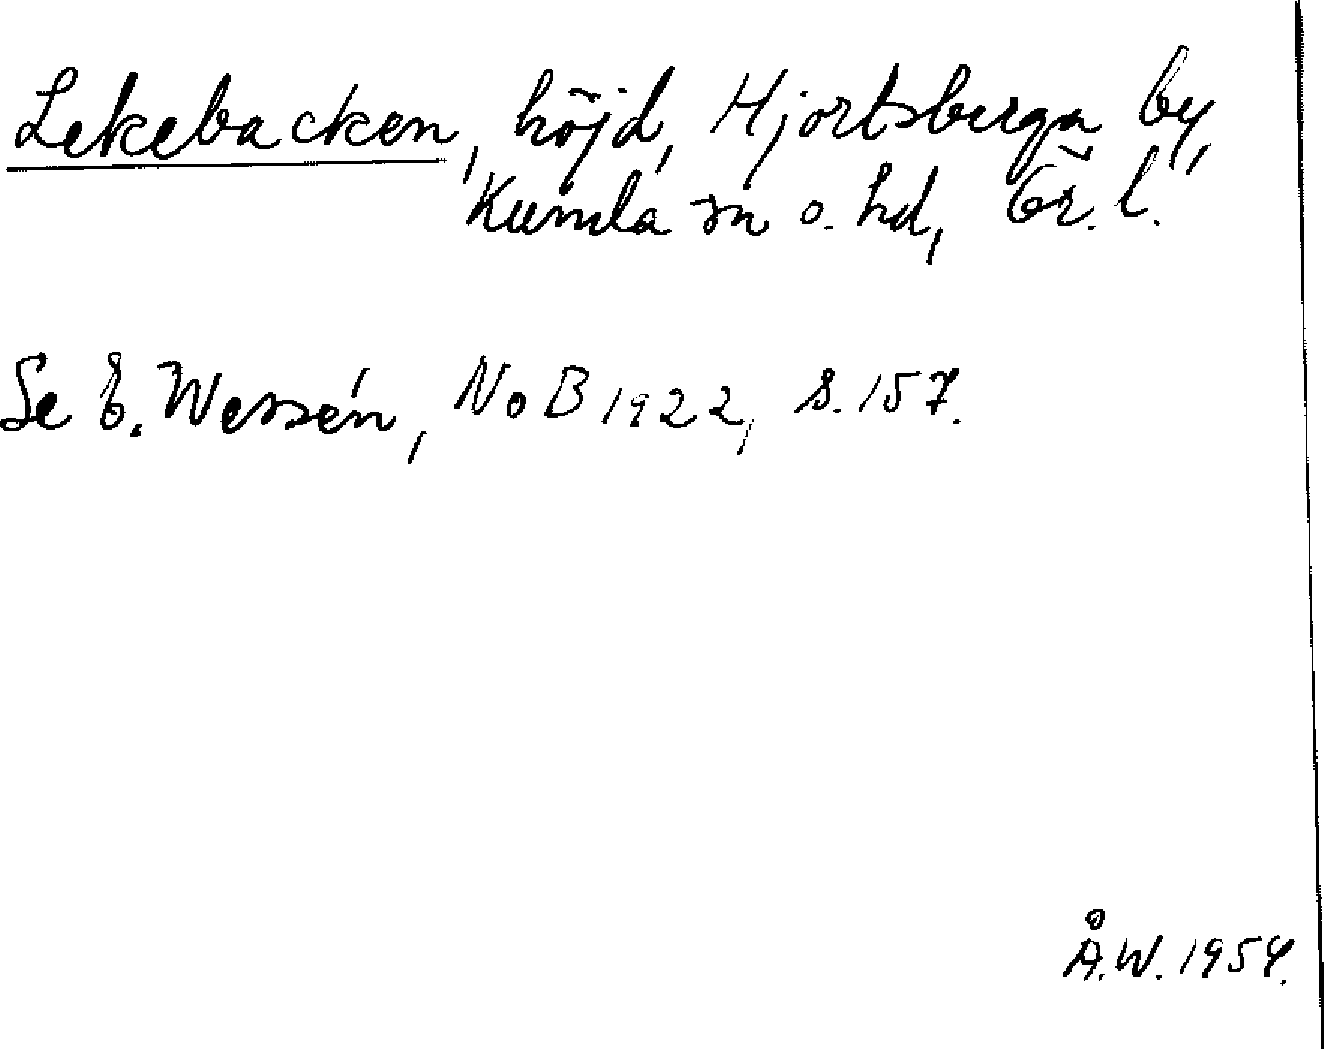 Lekebacken, höjd, Hjortsberga by,
Kumla sn o. hd, Ör. l.
Se E. Wessén, NoB 1922, s. 157.
Å.W. 1954.